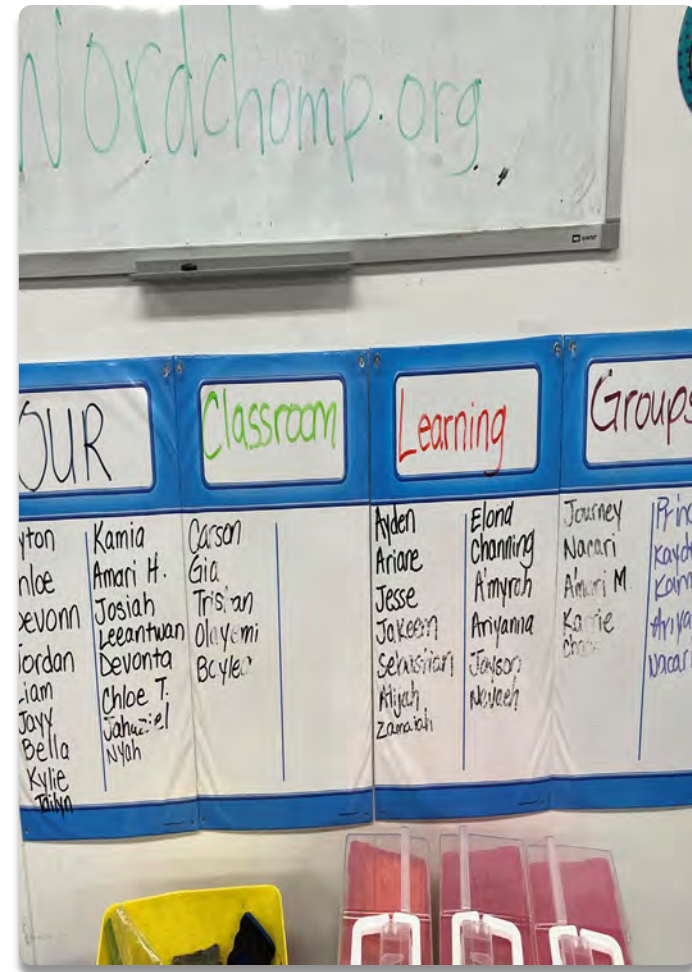 Wordchomp.org
OUR
Classroom
Learning
Groups
yton
hloe
evonn
ordan
Liam
Jayy
Bella
Kylie
Jailyn
Kamia
Amari H.
Josiah
Leeantwan
Devonta
Chloe T.
Jahaziel
Nyah
Carson
Gia
Tristan
Olayemi
Ayden
Ariare
Jesse
Jakeem
Sebastian
Alijah
Zamaiah
Elond
Channing
A'myrah
Ariyanna
Jayson
Nevaeh
Journey
Nacari
A'mari M
Karrie
Princ
Kayd
Ariya
Nacari